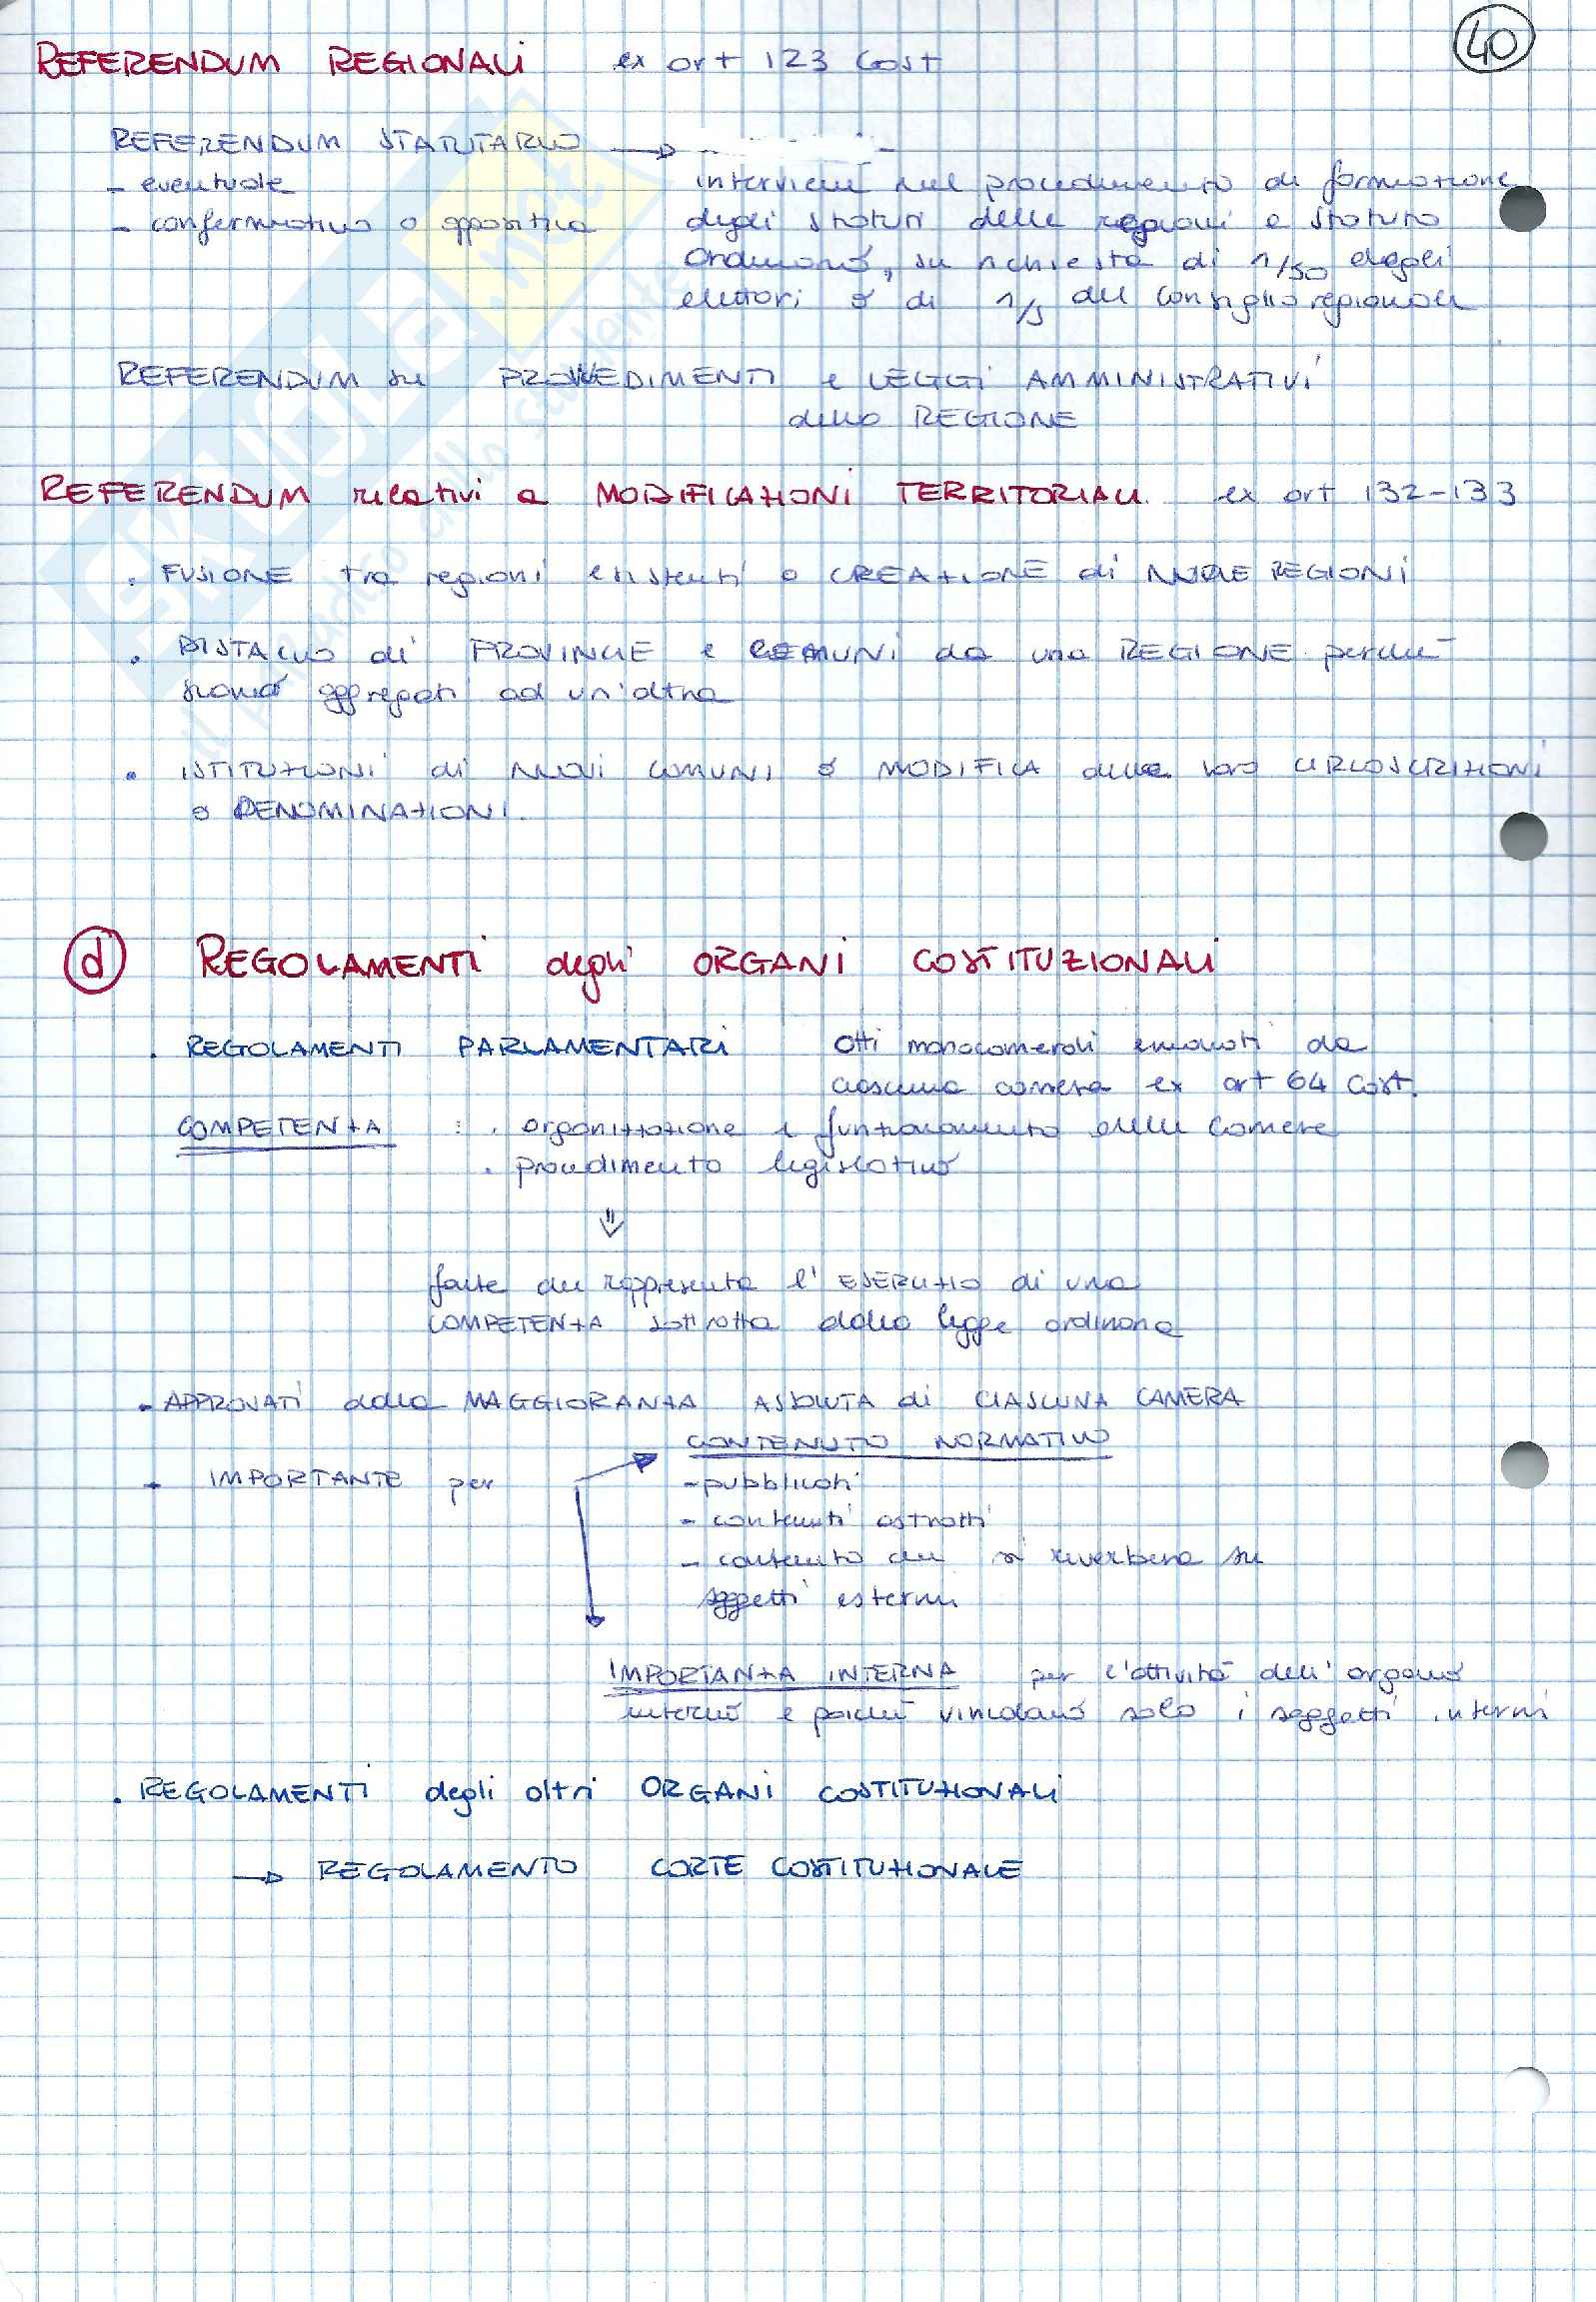 40
REFERENDUM REGIONALI ex art 123 Cost
REFERENDUM STATUTARIO →
- eventuale
- confermativo o oppositivo
interviene nel procedimento di formazione
degli statuti delle regioni e statuto
ordinario, su richiesta di 1/50 degli
elettori o di 1/5 del Consiglio regionale
REFERENDUM su PROVVEDIMENTI e LEGGI AMMINISTRATIVI
della REGIONE
REFERENDUM relativi a MODIFICAZIONI TERRITORIALI ex art 132-133
. FUSIONE tra regioni esistenti o CREAZIONE di NUOVE REGIONI
. DISTACCO di PROVINCIE e COMUNI da una REGIONE perché
siano aggregati ad un'altra
. ISTITUZIONI di NUOVI COMUNI o MODIFICA delle loro CIRCOSCRIZIONI
o DENOMINAZIONI.
d REGOLAMENTI degli ORGANI COSTITUZIONALI
. REGOLAMENTI PARLAMENTARI atti monocamerali emanati da
ciascuna camera ex art 64 Cost.
COMPETENZA : . organizzazione e funzionamento delle Camere
. procedimento legislativo
⇓
fonte che rappresenta l'ESERCIZIO di una
COMPETENZA sottratta dalla legge ordinaria
. APPROVATI dalla MAGGIORANZA ASSOLUTA di CIASCUNA CAMERA
CONTENUTO NORMATIVO
. IMPORTANTE per
- pubblicati
- contenuti astratti
- contenuto che si riverbera su
soggetti esterni
IMPORTANZA INTERNA per l'attività dell'organo
interno e poiché vincolano solo i soggetti interni
. REGOLAMENTI degli altri ORGANI COSTITUZIONALI
→ REGOLAMENTO CORTE COSTITUZIONALE
SKUOLA.net
il paradiso dello studente